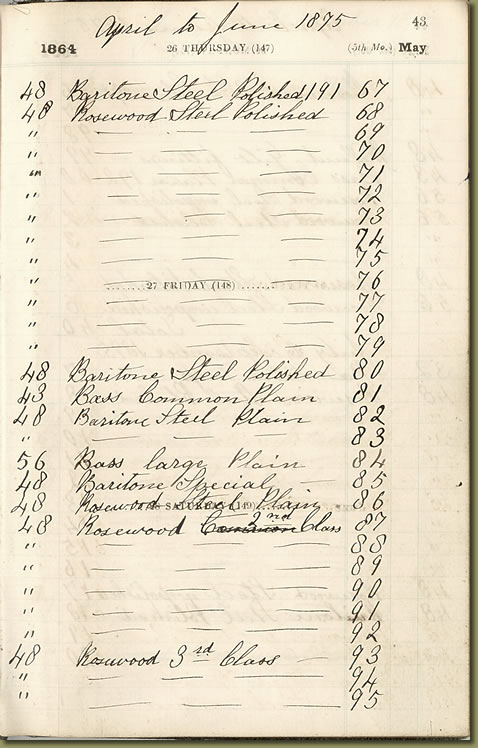 April to June 1875 43
1864 26 THURSDAY (147) (5th Mo.) May
48 Baritone Steel Polished 191 67
48 Rosewood Steel Polished 68
" — — — 69
" — — — 70
" — — — 71
" — — — 72
" — — — 73
" — — — 74
" — — — 75
" — — — 76
27 FRIDAY (148)
" — — — 77
" — — — 78
" — — — 79
48 Baritone Steel Polished 80
43 Bass Common Plain 81
48 Baritone Steel Plain 82
" — — — 83
56 Bass large Plain 84
48 Baritone Special — 85
48 Rosewood Steel Plain 86
28 SATURDAY (149)
48 Rosewood Common 2nd Class 87
" — — — 88
" — — — 89
" — — — 90
" — — — 91
" — — — 92
48 Rosewood 3rd Class — 93
" — — — 94
" — — — 95